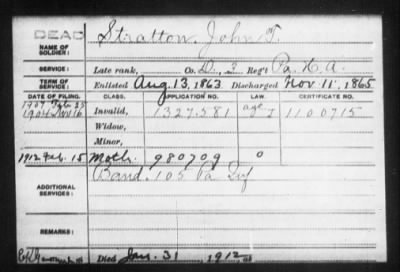 DEAD
NAME OF SOLDIER: Stratton, John T.
SERVICE: Late rank, Co. D, 2 Reg't Pa. H. A.
TERM OF SERVICE: Enlisted Aug. 13, 1863 Discharged Nov. 11, 1865
DATE OF FILING. CLASS. APPLICATION NO. LAW. CERTIFICATE NO.
1907 Feb 25 age
1904 16 Invalid, 1327.581 I 1100715
Widow,
Minor,
1912 Feb. 15 Moth. 980709 0
ADDITIONAL SERVICES: Band. 105 Pa Inf
REMARKS:
Died Jan. 31, 1912, at